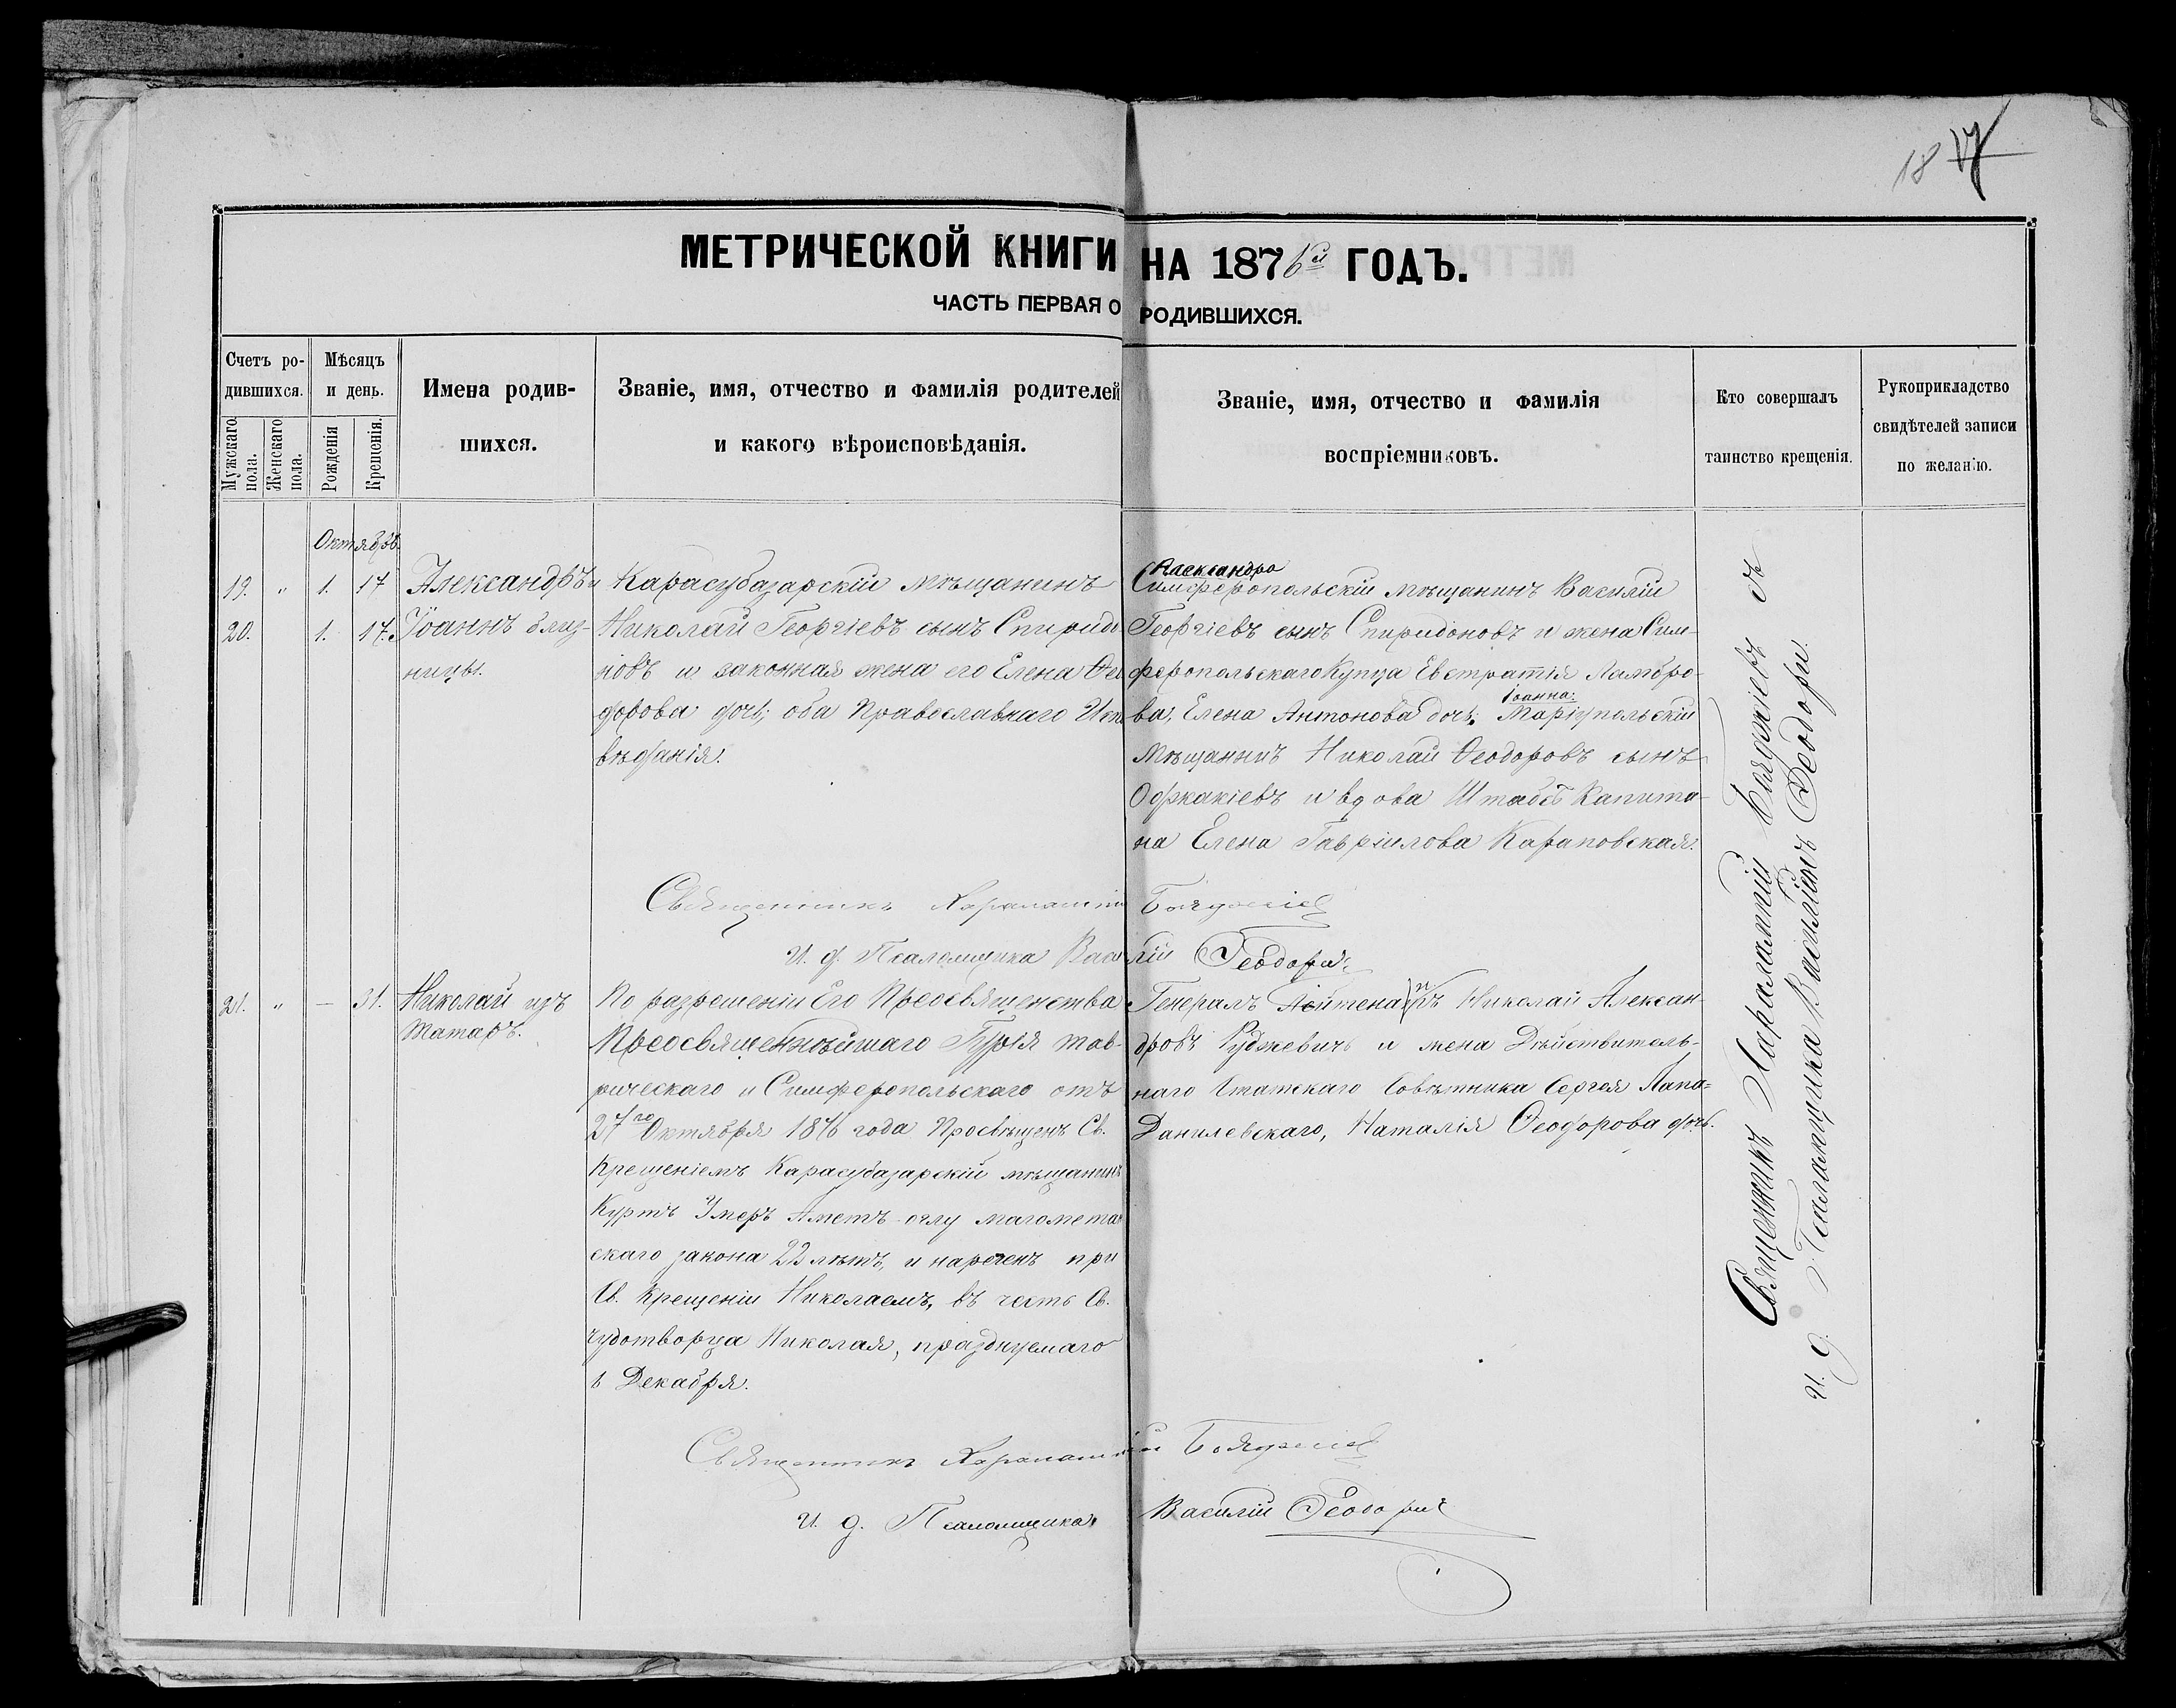 18 17
МЕТРИЧЕСКОЙ КНИГИ НА 1876й ГОДЪ.
ЧАСТЬ ПЕРВАЯ О РОДИВШИХСЯ.
Счетъ ро-
дившихся.
Мужскаго пола.
Женскаго пола.
Мѣсяцъ
и день.
Рожденія
Крещенія.
Имена родив-
шихся.
Званіе, имя, отчество и фамилія родителей
и какого вѣроисповѣданія.
Званіе, имя, отчество и фамилія
воспріемниковъ.
Кто совершалъ
таинство крещенія.
Рукоприкладство
свидѣтелей записи
по желанію.
Октябрь.
19. " 1. 17 Александръ и
20. 1. 17. Іоаннъ близ-
ницы.
Карасубазарскій мѣщанинъ
Николай Георгіевъ сынъ Спиридо
новъ и законная жена его Елена Ѳео
дорова дочь; оба Православнаго Испо
вѣданія.
Александра
Симферопольскій мѣщанинъ Василій
Георгіевъ сынъ Спиридоновъ и жена Сим-
феропольскаго Купца Евстратія Ламбро-
Іоанна:
ва, Елена Антонова дочь. Маріупольскій
мѣщанинъ Николай Ѳеодоровъ сынъ
и вдова Штабсъ Капита-
на Елена Гавріилова
Священникъ Харалампій
И. д. Псаломщика Василій Ѳеодори
21. " — 31. Николай изъ
татаръ.
По разрешеніи Его Преосвященства
Преосвященнѣйшаго Гурія тав-
рическаго и Симферопольскаго отъ
27го Октября 1876 года Просвѣщенъ Св.
Крещеніемъ Карасубазарскій мѣщанинъ
Куртъ Умеръ Аметъ-оглу магометан
скаго закона 22 лѣтъ, и нареченъ при
Св. Крещеніи Николаемъ, въ честь Св.
Чудотворца Николая, празднуемаго
6 Декабря.
Генералъ Лейтенантъ Николай Алексан-
дровъ Рудзевичъ и жена Дѣйствитель-
наго Статскаго Совѣтника Сергея Папа-
Данилевскаго, Наталія Ѳеодорова дочь.
Священникъ Харалампій
И. д. Псаломщика Василій Ѳеодори
Священникъ Харалампій съ
И. д. Псаломщика Василіемъ Ѳеодори.